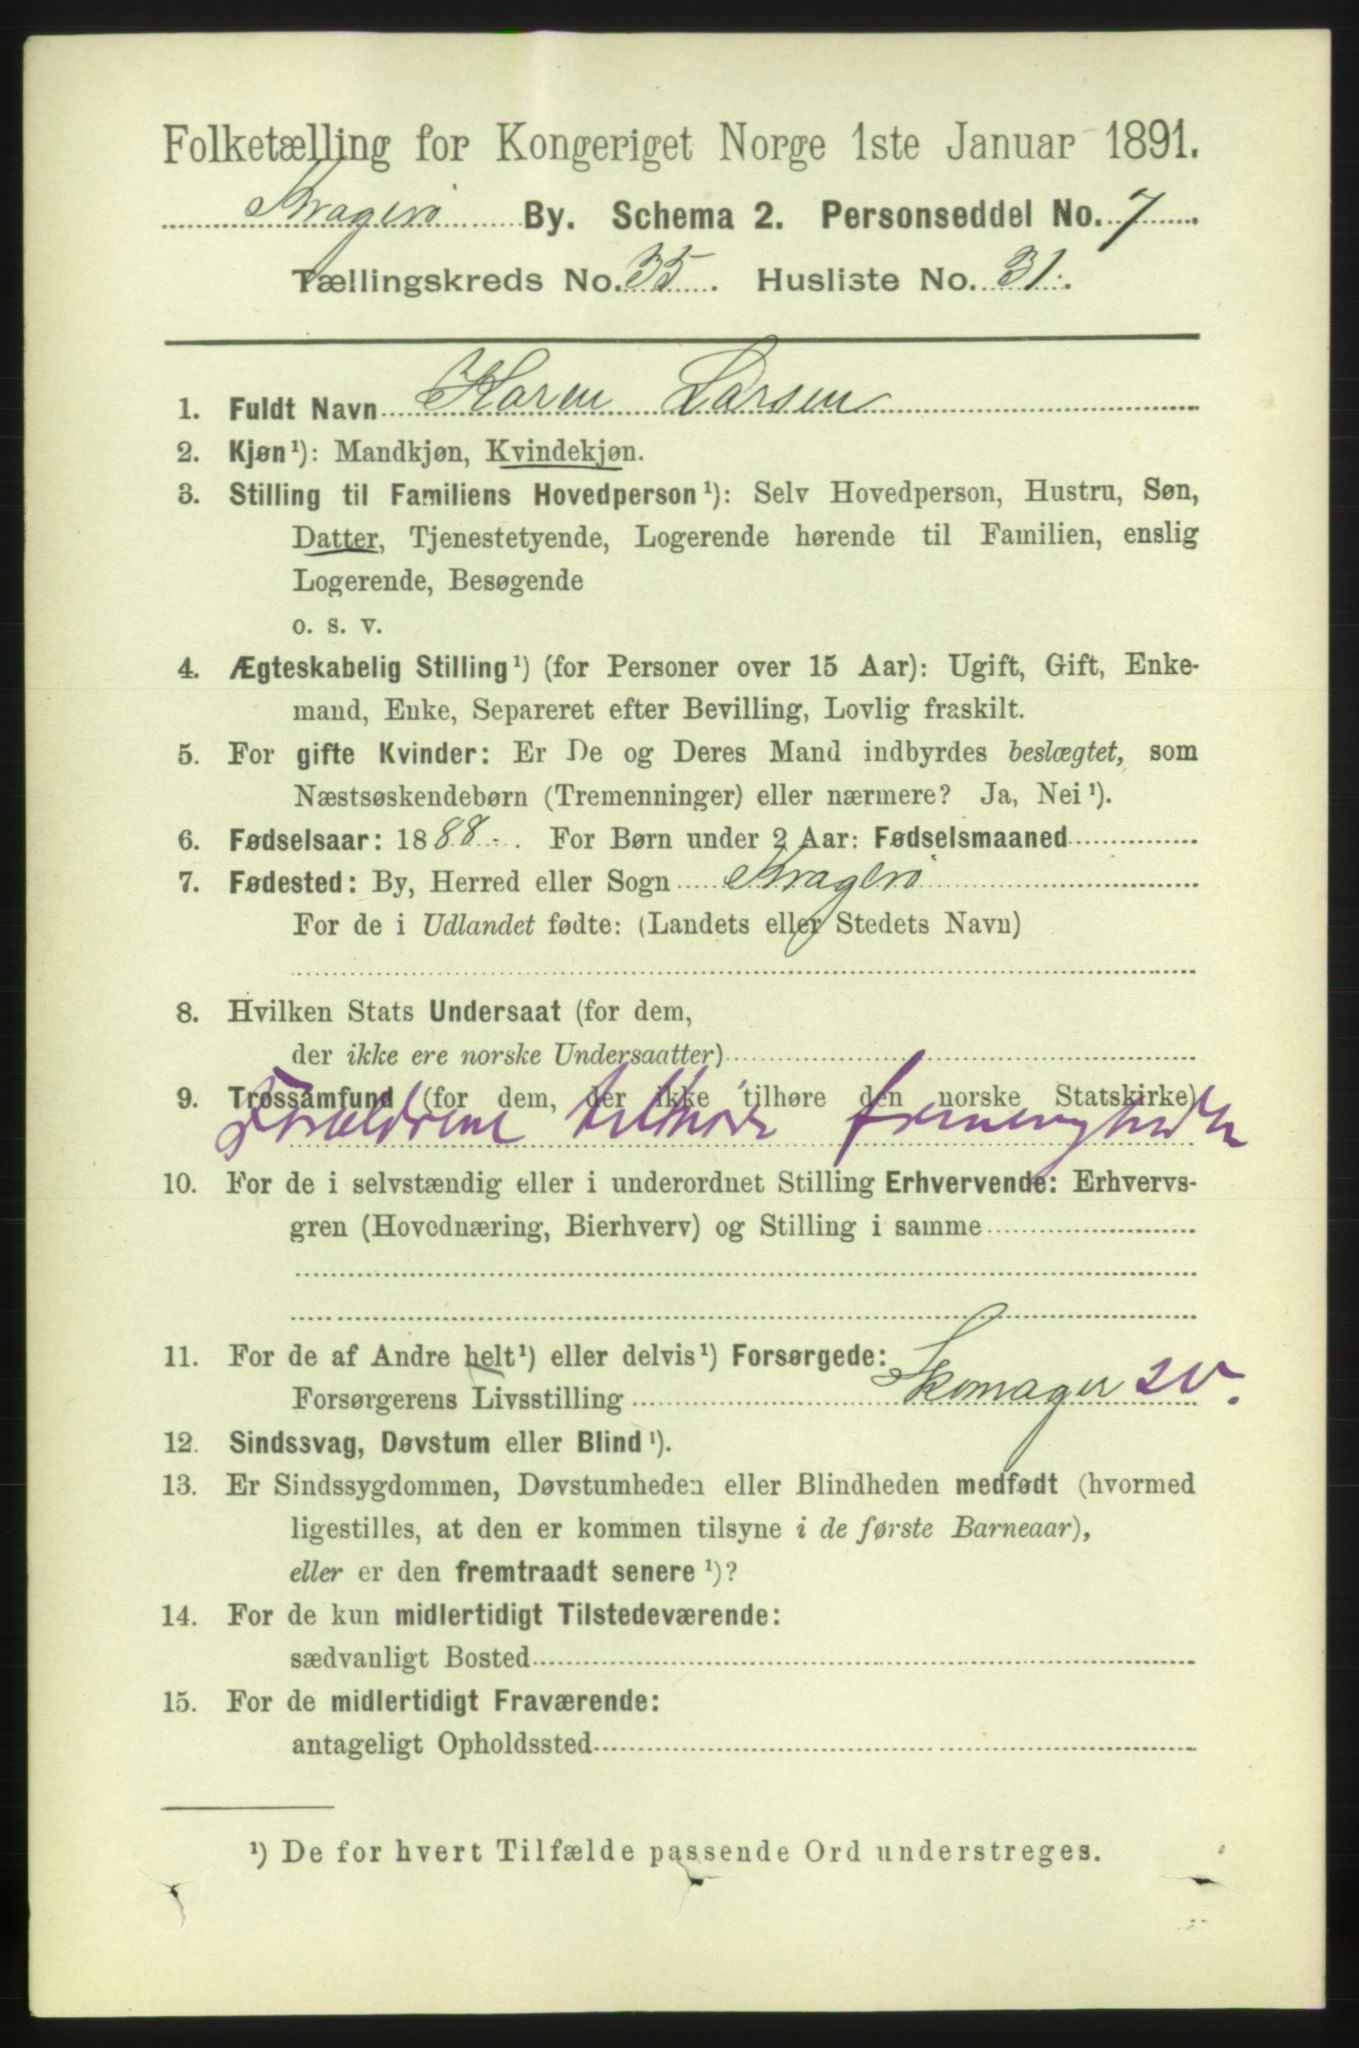 Folketælling for Kongeriget Norge 1ste Januar 1891.
Kragerø By. Schema 2. Personseddel No. 7
Tællingskreds No. 35. Husliste No. 31.
1. Fuldt Navn Karen Larsen
2. Kjøn¹): Mandkjøn, Kvindekjøn.
3. Stilling til Familiens Hovedperson¹): Selv Hovedperson, Hustru, Søn,
Datter, Tjenestetyende, Logerende hørende til Familien, enslig
Logerende, Besøgende
o. s. v.
4. Ægteskabelig Stilling¹) (for Personer over 15 Aar): Ugift, Gift, Enke-
mand, Enke, Separeret efter Bevilling, Lovlig fraskilt.
5. For gifte Kvinder: Er De og Deres Mand indbyrdes beslægtet, som
Næstsøskendebørn (Tremenninger) eller nærmere? Ja, Nei¹).
6. Fødselsaar: 1888. For Børn under 2 Aar: Fødselsmaaned
7. Fødested: By, Herred eller Sogn Kragerø
For de i Udlandet fødte: (Landets eller Stedets Navn)
8. Hvilken Stats Undersaat (for dem,
der ikke ere norske Undersaatter)
9. Trossamfund (for dem, der ikke tilhøre den norske Statskirke)
Forældrene tilhøre
10. For de i selvstændig eller i underordnet Stilling Erhvervende: Erhvervs-
gren (Hovednæring, Bierhverv) og Stilling i samme
11. For de af Andre helt¹) eller delvis¹) Forsørgede:
Forsørgerens Livsstilling Skomager sv.
12. Sindssvag, Døvstum eller Blind¹).
13. Er Sindssygdommen, Døvstumheden eller Blindheden medfødt (hvormed
ligestilles, at den er kommen tilsyne i de første Barneaar),
eller er den fremtraadt senere¹)?
14. For de kun midlertidigt Tilstedeværende:
sædvanligt Bosted
15. For de midlertidigt Fraværende:
antageligt Opholdssted
¹) De for hvert Tilfælde passende Ord understreges.